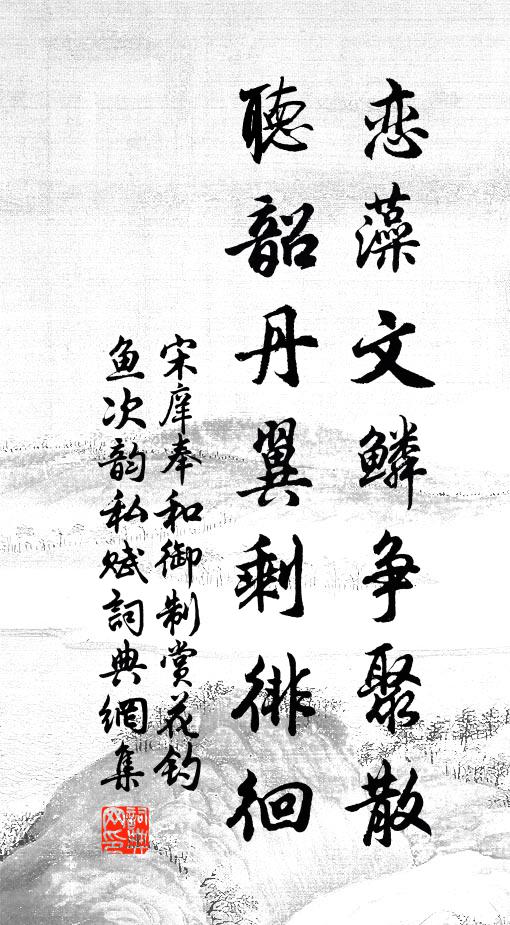 恋藻文鳞争聚散
聽韶丹翼剩徘徊
宋庠奉和御制赏花钓
鱼次韵私赋詞典網集